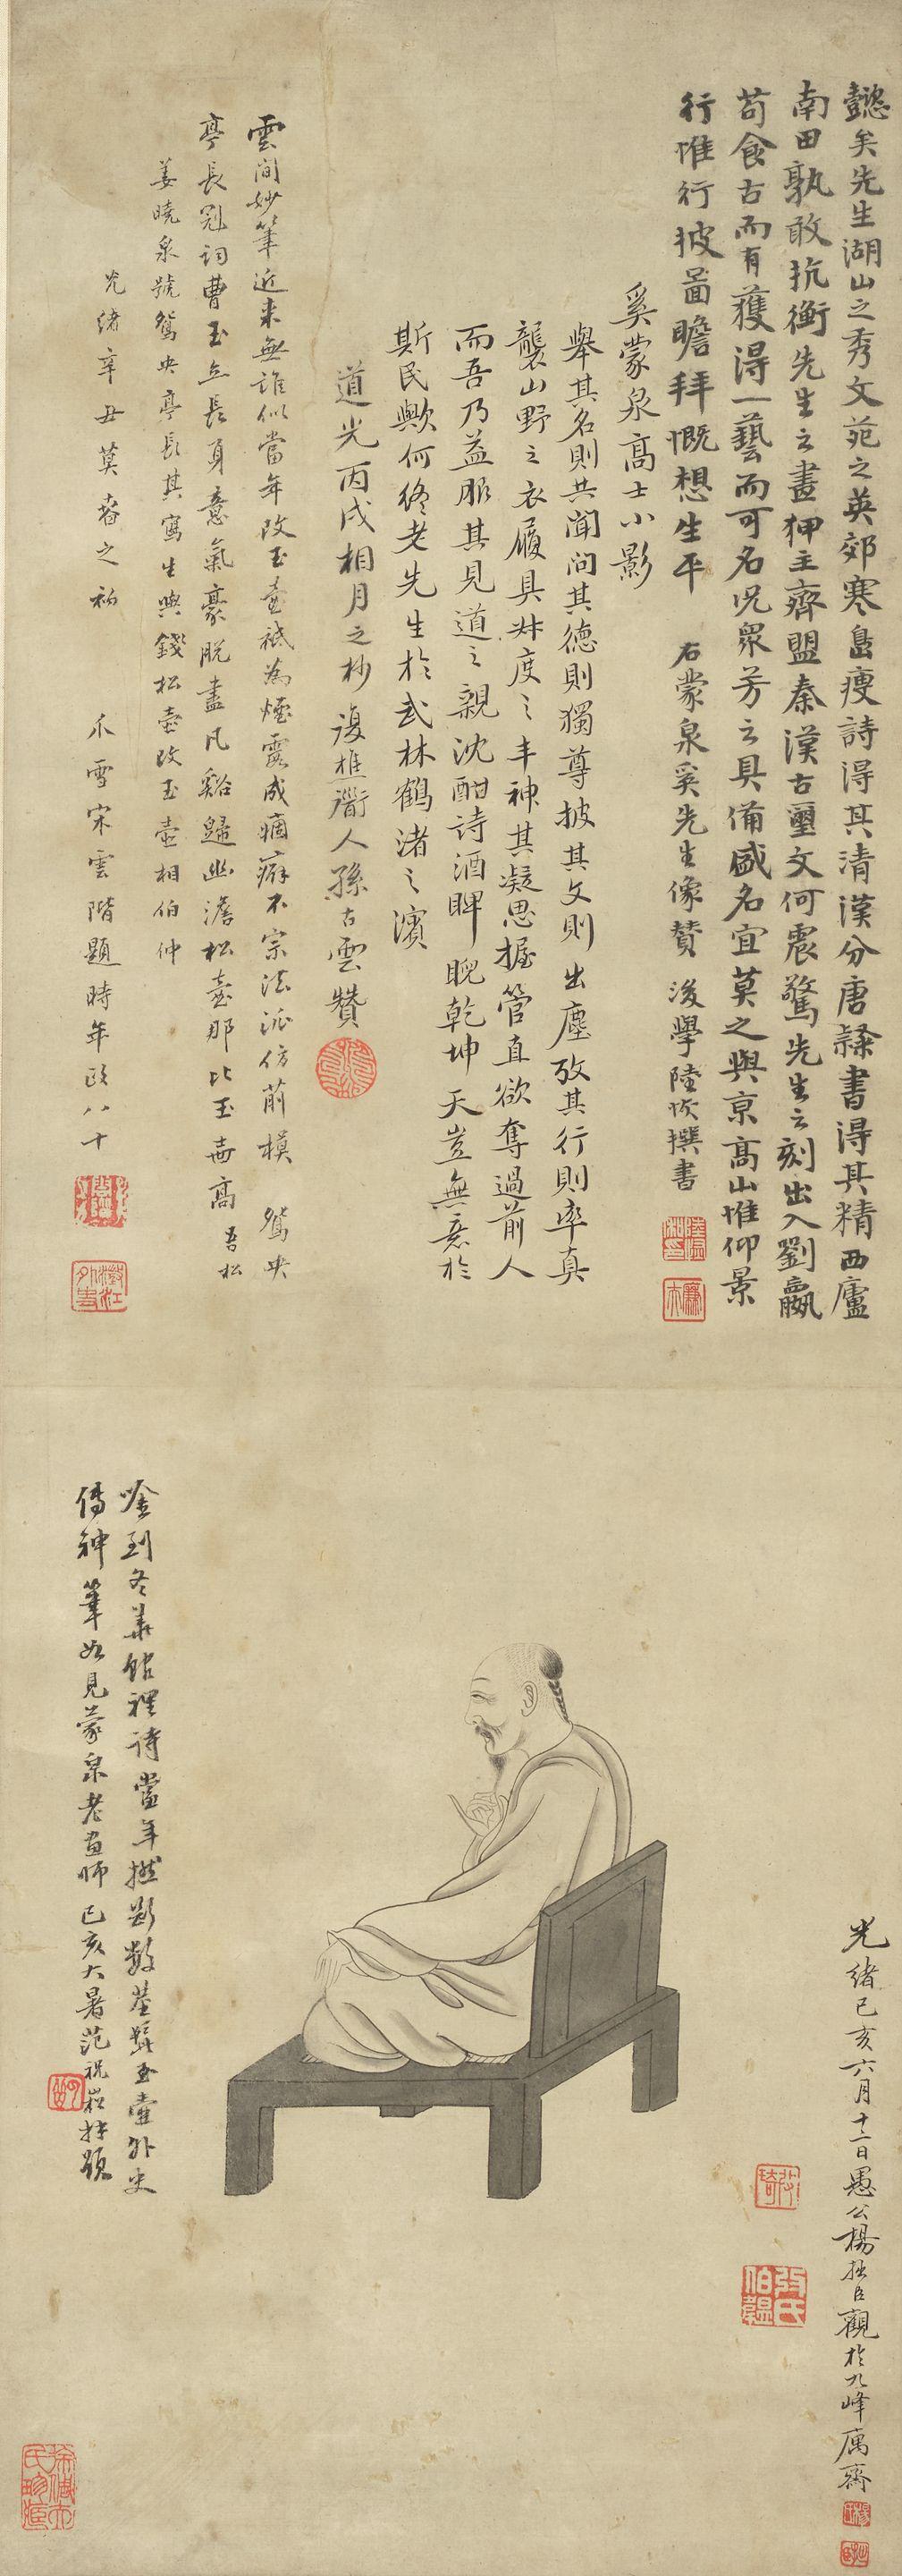 懿矣先生湖山之秀文苑之英郊寒島瘦詩得其清漢分唐隸書得其精西廬
南田孰敢抗衡先生之畫狎主齊盟秦漢古璽文何震驚先生之刻出入劉嬴
苟食古而有獲得一藝而可名况眾芳之具備盛名宜莫之與京高山惟仰景
行惟行披啚瞻拜慨想生平 右蒙泉奚先生像贊 後學陸恢撰書
奚蒙泉高士小影
舉其名則共聞問其德則獨尊披其文則出塵攷其行則率真
襲山野之衣履具叔度之丰神其凝思握管直欲奪過前人
而吾乃益服其見道之親沈酣詩酒睥睨乾坤天豈無意於
斯民歟何終老先生於武林鶴渚之濱
道光丙戌相月之杪 復樵衜人孫古雲贊
雲間妙筆近來無誰似當年改玉壺祇為煙霞成痼癖不宗法派仿前模 鴛央
亭長冠詞曹玉立長身意氣豪脫盡凡谿歸幽澹松壺那比玉壺高 吾松
姜曉泉號鴛央亭長其寫生與錢松壺改玉壺相伯仲
光緒辛丑莫春之初 爪雪宋雲階題時年政八十
唫到冬華館裡詩當年撚斷數莖髭玉壺外史
傳神筆如見蒙泉老畫師 己亥大暑范祝崧拜題
光緒己亥六月十二日愚公楊 觀於九峰寓齋
張氏
伯韞